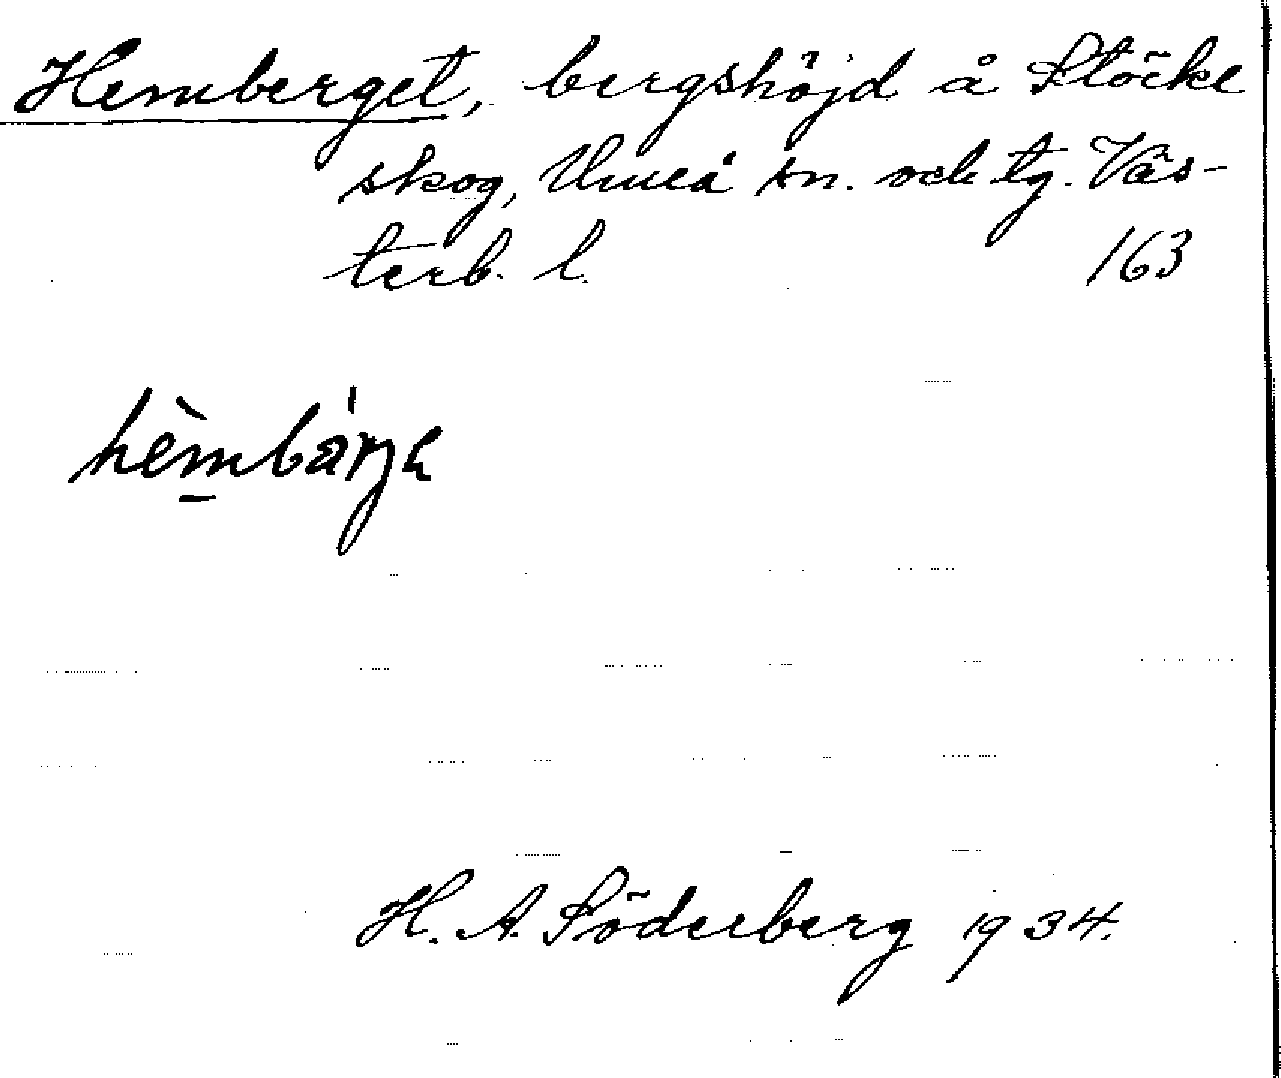 Hemberget, bergshöjd å Stöcke
skog, Umeå sn. och tg. Väs-
terb. l. 163
hèmbárje
H. A. Söderberg 1934.